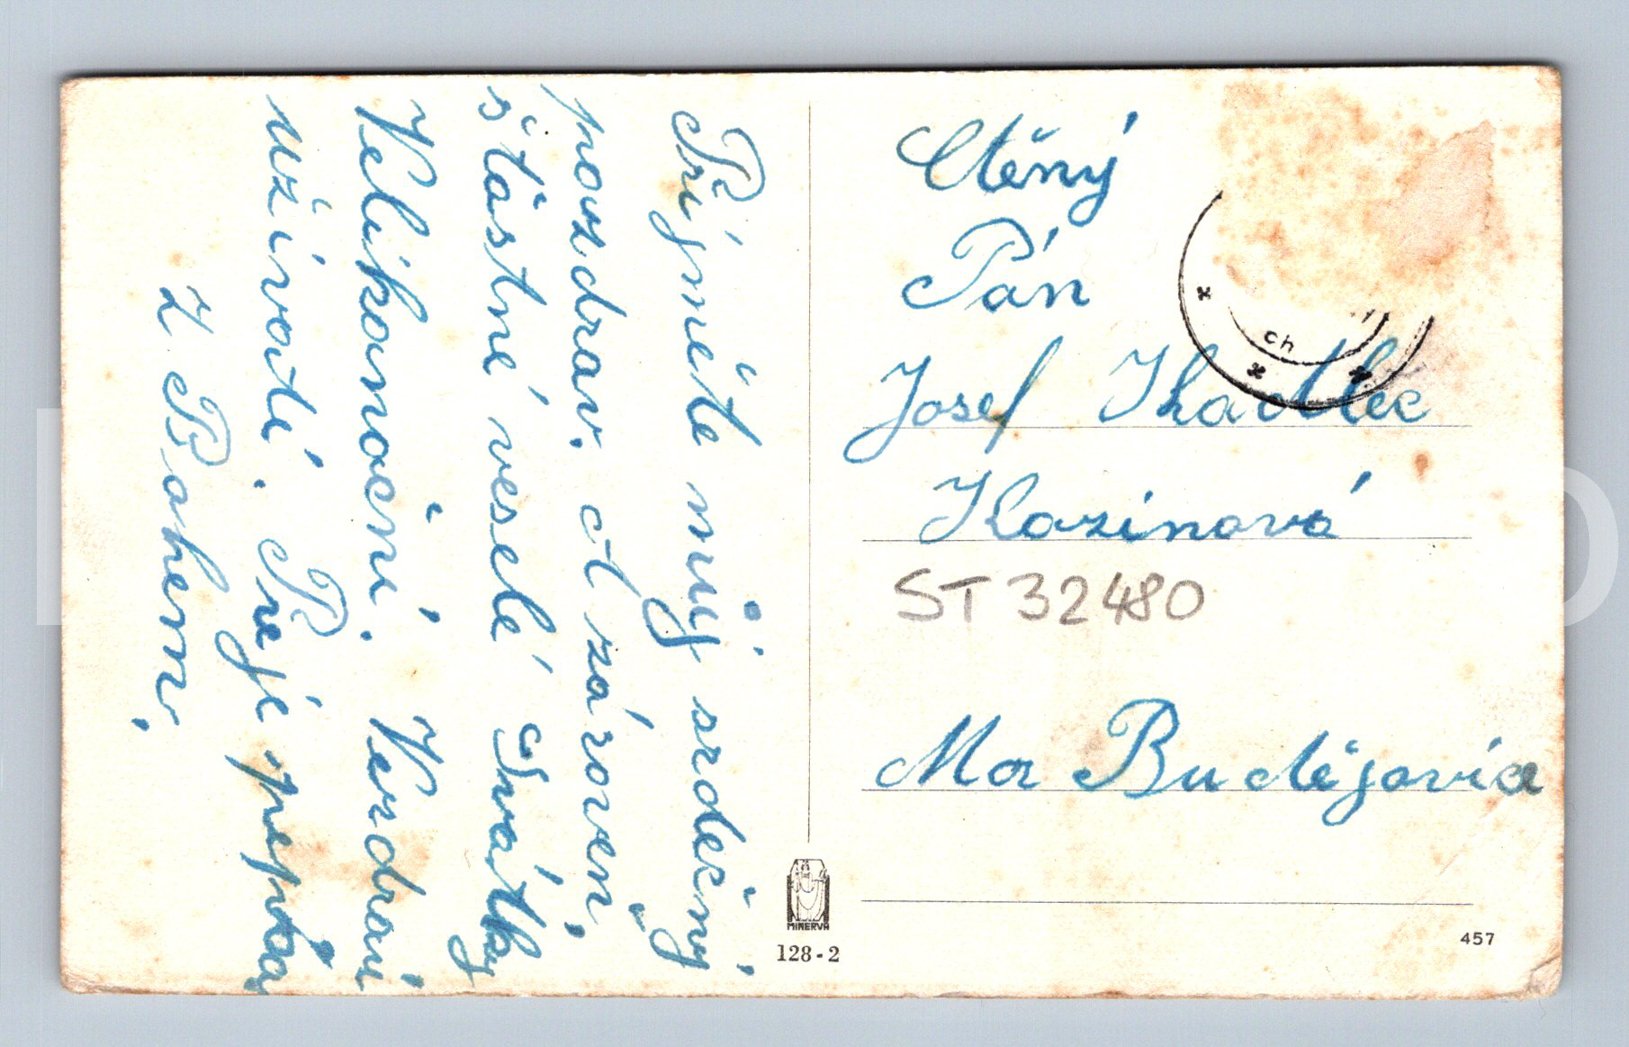 Přijměte můj srdečný
pozdrav. A zároveň,
šťastné veselé Svátky
Velikonoční. Ve zdraví
užívati. Přeje
Z Bohem,
Ctěný
Pán
Josef Kadlec
Kozinová
ST 32480
Mor Budějovice
ch
MINERVA
128-2
457